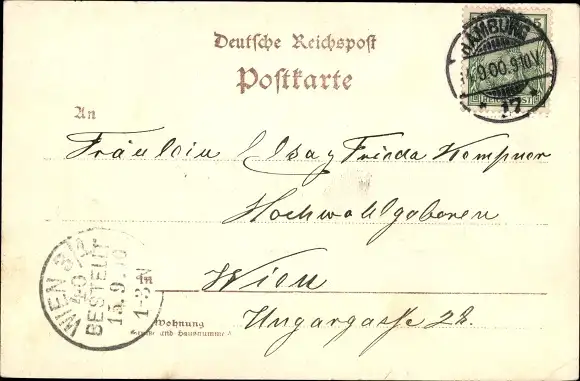 Deutsche Reichspost
Postkarte
5
HAMBURG
9.00.9-10V.
* 17 *
REICHSPOST
An
Fräulein Elsa & Frieda Kempner
Hochwohlgeboren
in Wien
Wohnung
(Straße und Hausnummer)
Ungargasse 28.
WIEN 3/1
40
BESTELLT
15.9.00
1-3.N